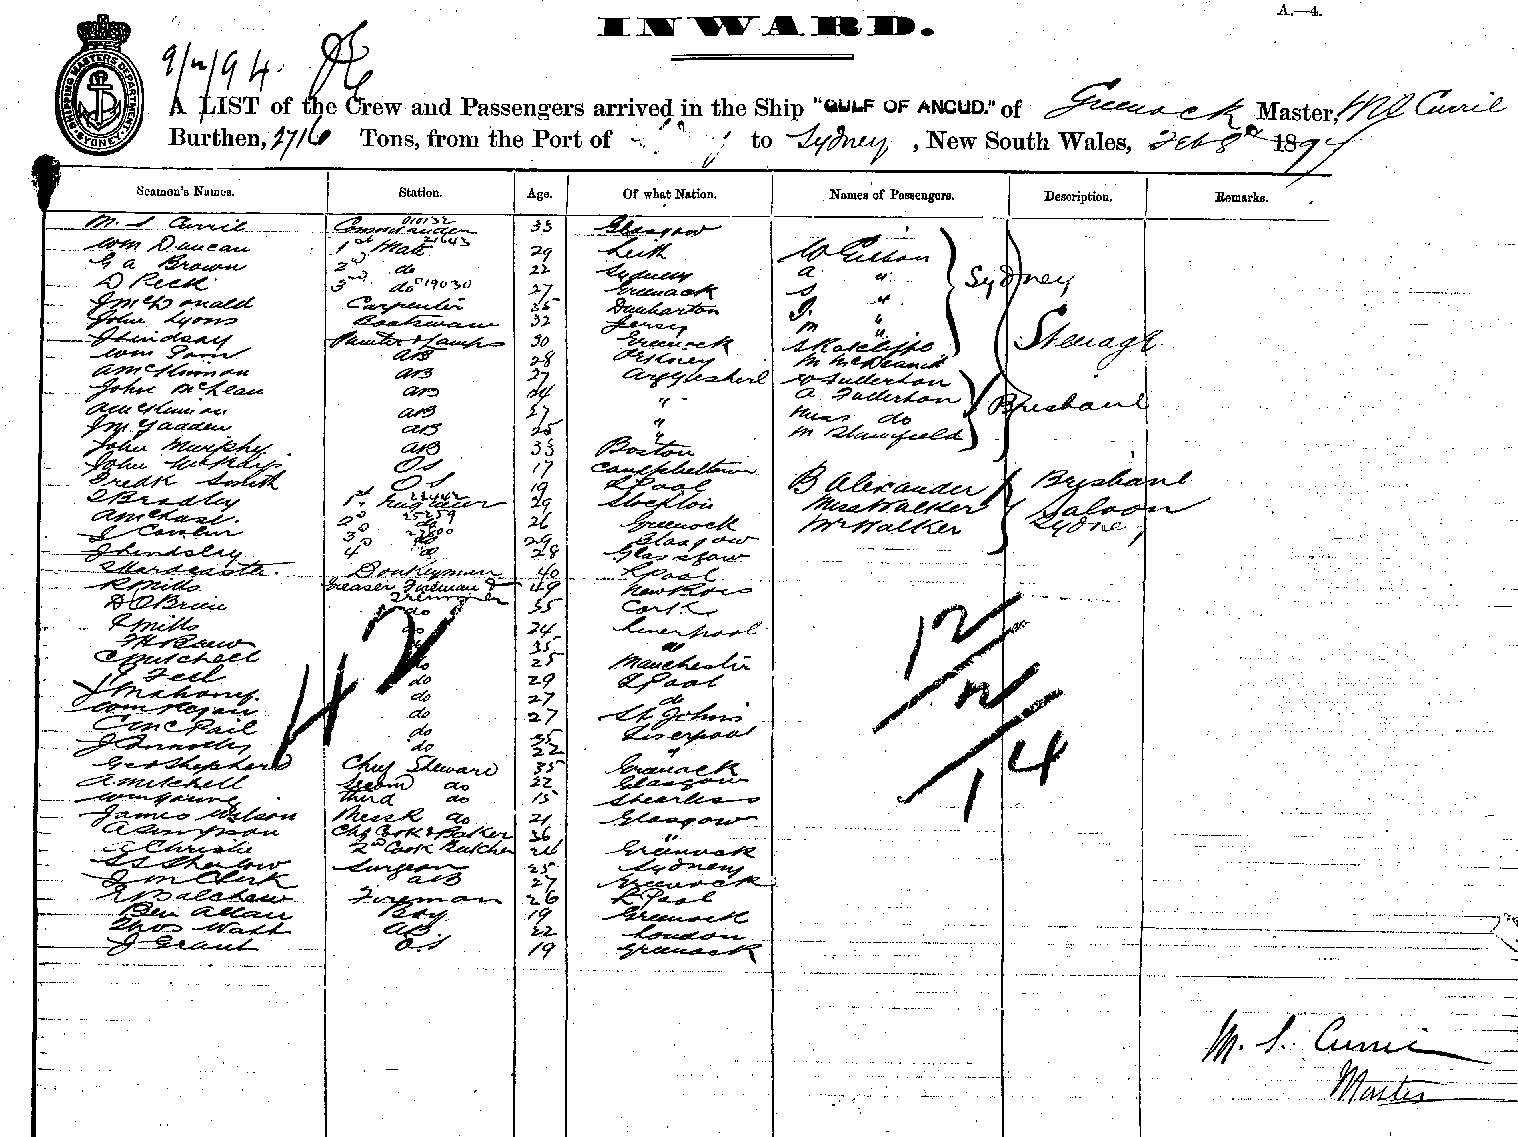 A.—4.
INWARD.
SHIPPING MASTERS DEPARTMENT SYDNEY
9/2/94
A LIST of the Crew and Passengers arrived in the Ship "GULF OF ANCUD." of Greenock Master, M S Currie
Burthen, 2716 Tons, from the Port of to Sydney, New South Wales, Feb 8th 1894
Seamen's Names. Station. Age. Of what Nation. Names of Passengers. Description. Remarks.
M. S Currie Commander 010132 33 Glasgow
Wm Duncan 1st Mate 21643 29 Leith W Gibson
G A Brown 2nd do 22 Sydney A "
D Peck 3rd do 19030 27 Greenock S " Sydney
J McDonald Carpenter 35 Dunbarton J. "
John Lyons Boatswain 32 Jersey M "
J Lindsay Painter & Lamps 30 Greenock S Ratcliffe Steerage
Wm AB 28 Orkney M
A McKinnon AB 27 Argyleshire W Fullerton
John McLean AB 24 " A Fullerton Brisbane
AB 27 " Miss do
J M. AB 25 " M
John Murphy AB 33 Boston
John McKay OS 17 Campbeltown
Fredk Smith OS 19 L Pool B Alexander Brisbane
Bradley 1st Engineer 29 Stockton Miss Walker Saloon
2nd 25259 do 26 Greenock Mr Walker Sydney
J 3rd do 29 Glasgow
J Lindsley 4th do 28 Glasgow
Hardcastle Donkeyman 40 L Pool
R Mills Greaser Fireman & Trimmer 49 New Ross
D O Brien do 35 Cork
J Mills do 24 Liverpool
do 35 "
C Mitchell do 25 Manchester
Fell do 29 L Pool
J Mahony do 27 do
Wm Regan do 27 St Johns
C McPhail do 35 Liverpool
J do 22 "
Geo Shepherd Chief Steward 35 Greenock
A Mitchell Second do 22 Glasgow
Wm Young third do 15
James Wilson Messr do 21 Glasgow
A Simpson Chf Cook & Baker 36 "
Christie 2nd Cook Butcher 24 Greenock
Surgeon 25 Sydney
J M Clerk AB 27 Greenock
Fireman 26 L Pool
Ben Allan Boy 19 Greenock
Thos Watt AB 22 London
J Grant O.S 19 Greenock
42
12/2/14
M. S. Currie
Master